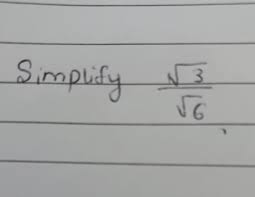 Simplify √3/√6